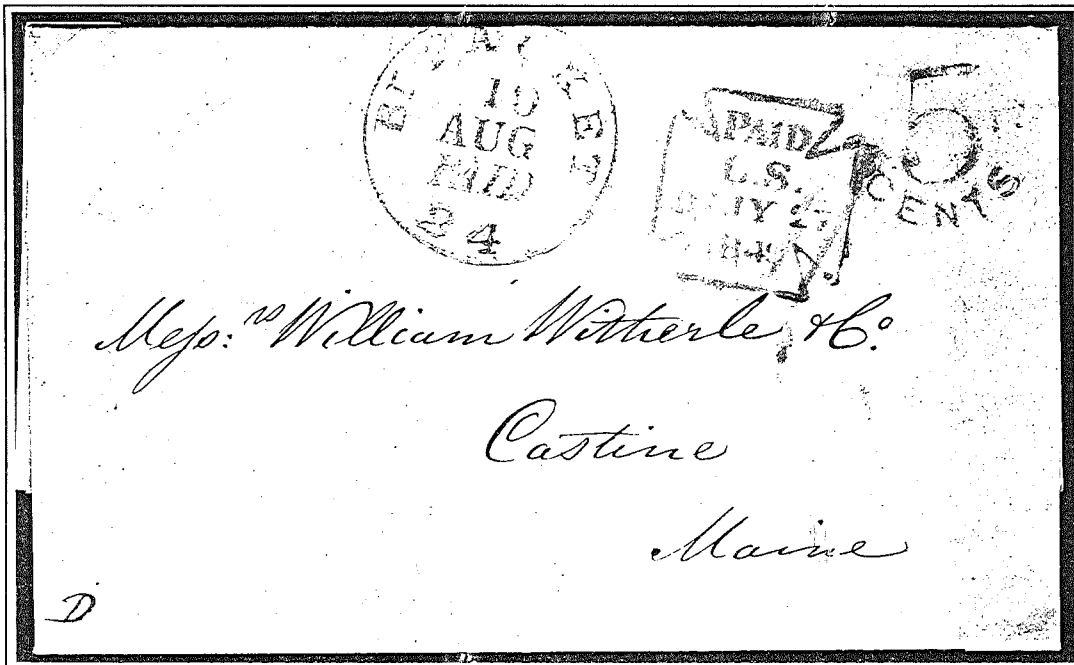 BR. PACKET
10
AUG
PAID
24
PAID
L.S.
JY 27
1849
5
CENTS
Messrs William Witherle & Co.
Castine
Maine
D